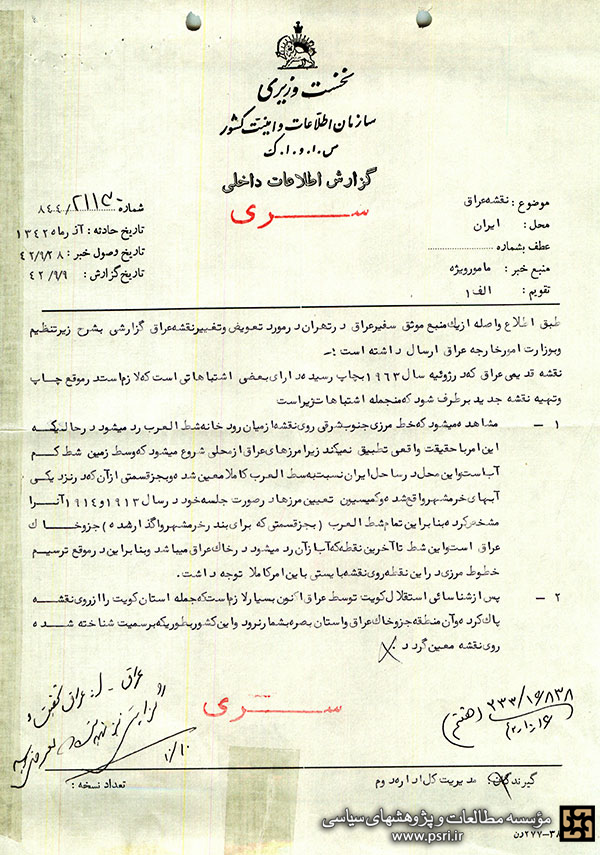 نخست وزیری
سازمان اطلاعات و امنیت کشور
س . ا . و . ا . ک
گزارش اطلاعات داخلی
سری
موضوع : نقشه عراق
محل : ایران
عطف بشماره :
منبع خبر : مامور ویژه
تقویم : الف ۱
شماره ۲۱۱۳/۸۴۴
تاریخ حادثه : آذر ماه ۱۳۴۲
تاریخ وصول خبر : ۴۲/۹/۲۸
تاریخ گزارش : ۴۲/۹/۹
طبق اطلاع واصله از یک منبع موثق سفیر عراق در تهران در مورد تعویض و تغییر نقشه عراق گزارشی بشرح زیر تنظیم
و بوزارت امور خارجه عراق ارسال داشته است :ـ
نقشه قدیمی عراق که در ژوئیه سال ۱۹۶۳ بچاپ رسیده دارای بعضی اشتباهاتی است که لازمست در موقع چاپ
و تهیه نقشه جدید بر طرف شود که منجمله اشتباهات زیر است
۱ – مشاهده میشود که خط مرزی جنوب شرقی روی نقشه از میان رودخانه شط العرب رد میشود در حالیکه
این امر با حقیقت واقعی تطبیق نمیکند زیرا مرزهای عراق از محلی شروع میشود که وسط زمین شط کم
آب است و این محل در ساحل ایران نسبت به شط العرب کاملا معین شده و بجز قسمتی از آن که در نزدیکی
آبهای خرمشهر واقع شده و کمیسیون تعیین مرزها در صورت جلسه خود در سال ۱۹۱۳ و ۱۹۱۴ آنرا
مشخص کرده بنا براین تمام شط العرب ( بجز قسمتی که برای بندر خرمشهر واگذار شده ) جزو خاک
عراق است و این شط تا آخرین نقطه که آب از آن رد میشود در خاک عراق میباشد و بنا براین در موقع ترسیم
خطوط مرزی در این نقطه روی نقشه بایستی باین امر کاملا توجه داشت .
۲ – پس از شناسائی استقلال کویت توسط عراق اکنون بسیار لازم است که جمله استان کویت را از روی نقشه
پاک کرده و آن منطقه جزو خاک عراق و استان بصره بشمار نرود و این کشور بطوریکه برسمیت شناخته شده
روی نقشه معین گردد
سری
۳۳۳/۱۶۸۳۸
۱۰/۱۰
گیرندگان : مدیریت کل اداره دوم
تعداد نسخه :
مؤسسه مطالعات و پژوهشهای سیاسی
www.psri.ir